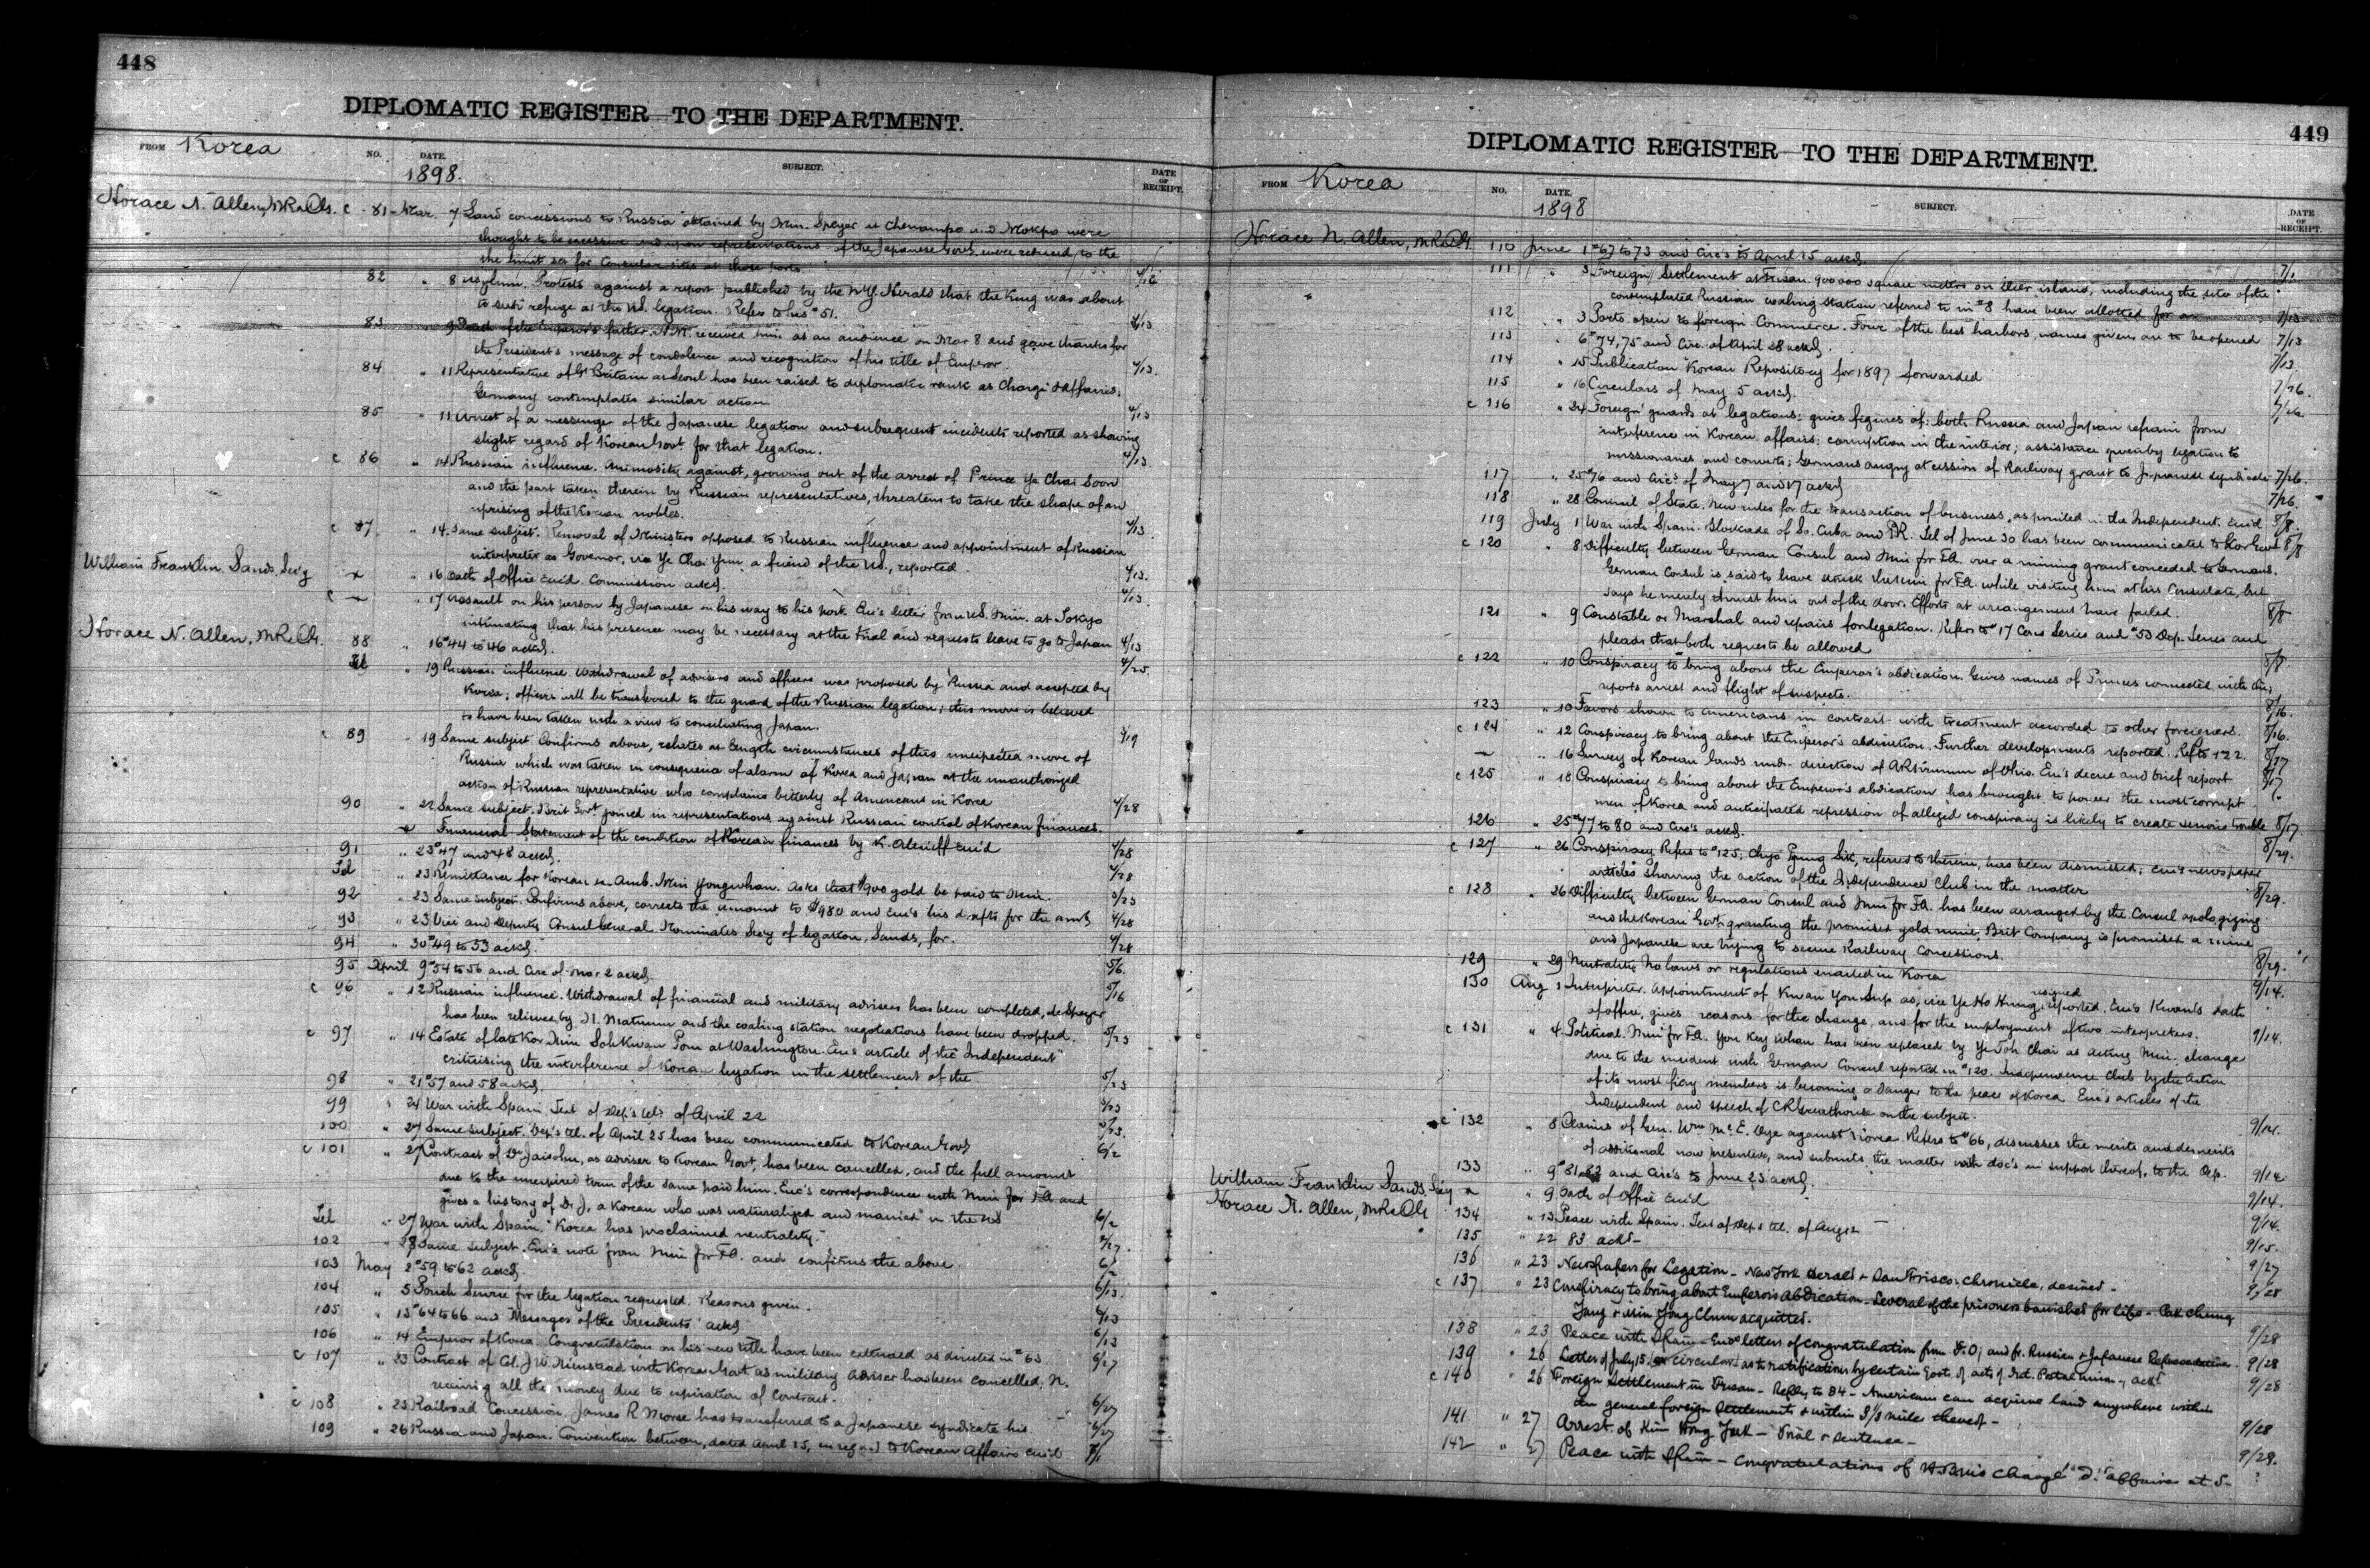 448
DIPLOMATIC REGISTER—TO THE DEPARTMENT.
FROM Korea NO. DATE. SUBJECT. DATE OF RECEIPT.
1898.
Horace N. Allen, MR&CG. c 81 - Mar. 7 Land concessions to Russia obtained by Min. Speyer at Chenampo and Mokpo were
thought to be excessive and upon representations of the Japanese Govt. were reduced to the
the limit set for Consular sites at those ports. 4/16
82 " 8 Asylum. Protests against a report published by the N.Y. Herald that the King was about
to seek refuge at the US. legation. Refers to his #51. 4/13
83 9 Death of the Emperor's father. H.M. received him at an audience on Mar 8 and gave thanks for
the President's message of condolence and recognition of his title of Emperor. 4/13.
84 " 11 Representative of Gt Britain at Seoul has been raised to diplomatic rank as Chargé d'Affaires;
Germany contemplates similar action 4/13
85 " 11 Arrest of a messenger of the Japanese legation and subsequent incidents reported as showing
slight regard of Korean Govt. for that legation. 4/13.
c 86 " 14 Russian influence. Animosity against, growing out of the arrest of Prince Ye Chai Soon
and the part taken therein by Russian representatives, threatens to take the shape of an
uprising of the Korean nobles. 4/13.
c 87 " 14. Same subject. Removal of Ministers opposed to Russian influence and appointment of Russian
interpreter as Governor, vice Ye Chai Yun, a friend of the US., reported. 4/13.
William Franklin Sands, Sec'y " 16 Oath of Office enc'd. Commission ackd. 4/13.
c " 17 Assault on his person by Japanese on his way to his post. Enc's letter from US. Min. at Tokyo
intimating that his presence may be necessary at the trial and requests leave to go to Japan 4/13
Horace N. Allen, MR&CG. 88 " 16 #44 to 46 ackd. 4/25.
Tel " 19 Russian influence. Withdrawal of advisers and officers was proposed by Russia and accepted by
Korea; officers will be transferred to the guard of the Russian legation; this move is believed
to have been taken with a view to conciliating Japan. 3/19
c 89 " 19 Same subject. Confirms above, relates at length circumstances of this unexpected move of
Russia which was taken in consequence of alarm of Korea and Japan at the unauthorized
action of Russian representative who complains bitterly of Americans in Korea 4/28
90 " 22 Same subject. Brit Govt. joined in representations against Russian control of Korean finances.
Financial Statement of the condition of Korean finances by K. Alexieff enc'd 4/28
91 " 23 #47 and 48 ackd. 4/28
Tel " 23 Remittance for Korean ex-Amb. Min Yongwhan. Asks that $900 gold be paid to Min. 3/23
92 " 23 Same subject. Confirms above, corrects the amount to $980 and enc's his drafts for the amt. 4/28
93 " 23 Vice and Deputy Consul General. Nominates Secy of legation, Sands, for. 4/28
94 " 30 #49 to 53 ackd. 5/6.
95 April 9 #54 to 56 and Circ of Mar 2 ackd. 5/16
c 96 " 12 Russian influence. Withdrawal of financial and military advisers has been completed, de Speyer
has been relieved by N. Matunine and the coaling station negotiations have been dropped. 5/23
c 97 " 14 Estate of late Kor Min Soh Kwan Pom at Washington. Enc's article of the "Independent"
criticising the interference of Korean legation in the settlement of the 5/23
98 " 21 #57 and 58 ackd. 5/23
99 " 24 War with Spain. Text of Dep's tel. of April 22 5/23.
100 " 27 Same subject. Dep's tel. of April 25 has been communicated to Korean Govt. 6/2
c 101 " 27 Contract of Dr Jaisohn, as adviser to Korean Govt, has been cancelled, and the full amount
due to the unexpired term of the same paid him. Enc's correspondence with Min for FA and
gives a history of Dr J, a Korean who was naturalized and married in the US 6/2
Tel " 27 War with Spain. "Korea has proclaimed neutrality." 4/27.
102 " 28 Same subject. Enc's note from Min for FA. and confirms the above. 6/2
103 May 2 #59 to 62 ackd. 6/13.
104 " 5 Pouch Service for the legation requested. Reasons given. 6/13
105 " 13 #64 to 66 and "Messages of the Presidents" ackd 6/13
106 " 14 Emperor of Korea. Congratulation on his new title have been extended as directed in #63 6/27
c 107 " 23 Contract of Col. J W. Nienstead with Korean Govt as military adviser has been cancelled, N.
receiving all the money due to expiration of contract. 6/27
c 108 " 23 Railroad Concession. James R Morse has transferred to a Japanese syndicate his 6/27
109 " 26 Russia and Japan. Convention between, dated April 25, in regard to Korean affairs enc'd 7/1
449
DIPLOMATIC REGISTER—TO THE DEPARTMENT.
FROM Korea NO. DATE. SUBJECT. DATE OF RECEIPT.
1898
Horace N. Allen, MR&CG. 110 June 1 #67 to 73 and Circ's to April 15 ackd. 7/1
111 " 3 Foreign Settlement at Fusan. 900000 square meters on Deer island, including the site of the
contemplated Russian coaling station referred to in #8 have been allotted for a 7/13
112 " 3 Ports open to foreign Commerce. Four of the best harbors, names given, are to be opened 7/13
113 " 6 #74, 75 and Circ. of April 28 ackd. 7/13.
114 " 15 Publication "Korean Repository" for 1897 forwarded 7/26.
115 " 16 Circulars of May 5 ackd. 7/26.
c 116 " 24 Foreign guards at legations: gives figures of; both Russia and Japan refrain from
interference in Korean affairs; corruption in the interior; assistance given by legation to
missionaries and converts; Germans angry at cession of Railway grant to Japanese syndicate 7/26.
117 " 25 #76 and Circ's of May 7 and 17 ackd 7/26.
118 " 28 Council of State. New rules for the transaction of business, as printed in the Independent, enc'd 8/8.
119 July 1 War with Spain. Blockade of So. Cuba and P.R. Tel of June 30 has been communicated to Kor Govt 8/8
c 120 " 8 Difficulty between German Consul and Min for FA. over a mining grant conceded to Germans.
German Consul is said to have struck the Min for FA. while visiting him at his Consulate, but
says he merely thrust him out of the door. Efforts at arrangement have failed. 8/8
121 " 9 Constable or Marshal and repairs for legation. Refers to #17 Cons Series and #53 Dip. Series and
pleads that both requests be allowed 8/8
c 122 " 10 Conspiracy to bring about the Emperor's abdication. Gives names of Princes connected with this,
reports arrest and flight of suspects. 8/16.
123 " 10 Favors shown to Americans in contrast with treatment accorded to other foreigners. 8/16.
c 124 " 12 Conspiracy to bring about the Emperor's abdication. Further developments reported. Refs to 122. 8/17
" 16 Survey of Korean lands under direction of of Ohio. Enc's decree and brief report 8/17
c 125 " 18 Conspiracy to bring about the Emperor's abdication has brought to power the most corrupt
men of Korea and anticipated repression of alleged conspiracy is likely to create serious trouble 8/17
126 " 25 #77 to 80 and Circ's ackd. 8/29.
c 127 " 26 Conspiracy. Refers to #125; Chyo Pyung Sik, referred to therein, has been dismissed; enc's newspaper
articles showing the action of the Independence Club in the matter 8/29.
c 128 " 26 Difficulty between German Consul and Min for FA. has been arranged by the Consul apologizing
and the Korean Govt. granting the promised gold mine; Brit Company is promised a mine
and Japanese are trying to secure Railway Concessions. 8/29.
129 " 29 Neutrality. No laws or regulations enacted in Korea 9/14.
130 Aug 1 Interpreter. Appointment of Kwan You Sup as, vice Ye Ho Kung, resigned, reported. Enc's Kwan's oath
of office, gives reasons for the change, and for the employment of two interpreters. 9/14.
c 131 " 4 Political. Min for FA. You Key Whan has been replaced by Ye Toh Chai as acting Min. change
due to the incident with German Consul reported in #120. Independence Club by the action
of its most fiery members is becoming a danger to the peace of Korea. Enc's articles of the
Independent and speech of CR Greathouse on the subject. 9/14.
c 132 " 8 Claims of Gen. Wm McE. Dye against Korea. Refers to #66, discusses the merits and demerits
of additional now presented, and submits the matter with doc's in support thereof, to the Dep. 9/14
133 " 9 #81 82 and Circ's to June 23 ackd. 9/14.
William Franklin Sands, Sec'y " 9 Oath of Office enc'd 9/14.
Horace N. Allen, MR&CG 134 " 13 Peace with Spain. Text of Dep's tel. of Aug 12 9/15.
135 " 22 83 ackd— 9/27
136 " 23 Newspapers for Legation — New York Herald & San Frisco. Chronicle, desired — 9/28
c 137 " 23 Conspiracy to bring about Emperor's abdication — Several of the prisoners banished for life — Pak Chung
Yang & Min Yong Chun acquitted. 9/28
138 " 23 Peace with Spain — Encs letters of congratulation from F.O; and fr. Russian & Japanese Representatives. 9/28
139 " 26 Letter of July 15. circular as to ratification by certain Govts. of acts of Int. Postal Union—, ackd 9/28
c 140 " 26 Foreign Settlement in Fusan — Reply to 84 — Americans can acquire land anywhere within
the general foreign settlements & within 3 1/3 mile thereof — 9/28
141 " 27 Arrest of Kim Hong Yuk — Trial & sentence — 9/28.
142 " 27 Peace with Spain — Congratulations of H.B.M's Chargé d'affaires at S—